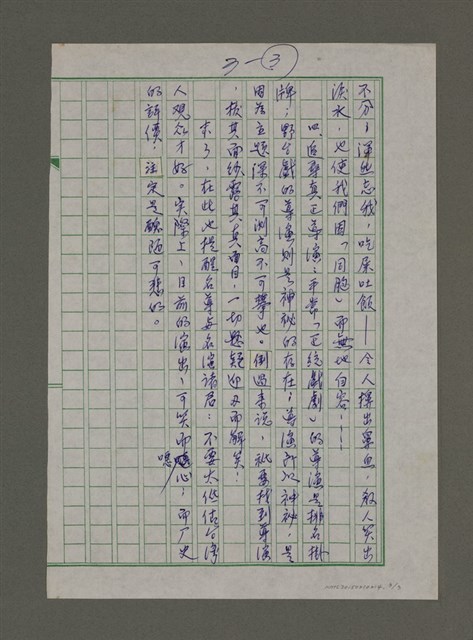 3-③
不分；渾然忘我，吃屎吐飯——令人揉出鼻血，教人笑出
淚水，也使我們因「同胞」而無地自容……
四、追尋真正導演：平常「正統戲劇」的導演是排名掛
牌；野台戲的導演則是神秘的存在；導演所以神秘，是
因為主題深不可測高不可攀也。倒過來說，祇要找到導演
，揭其面紗露其真面目，一切題疑迎刃而解矣：
末了，在此也提醒名導與名演諸君：不要太低估台灣
人觀眾才好。實際上，目前的演出，可笑而噁心；而厂史
的評價，註定是醜陋可悲的。